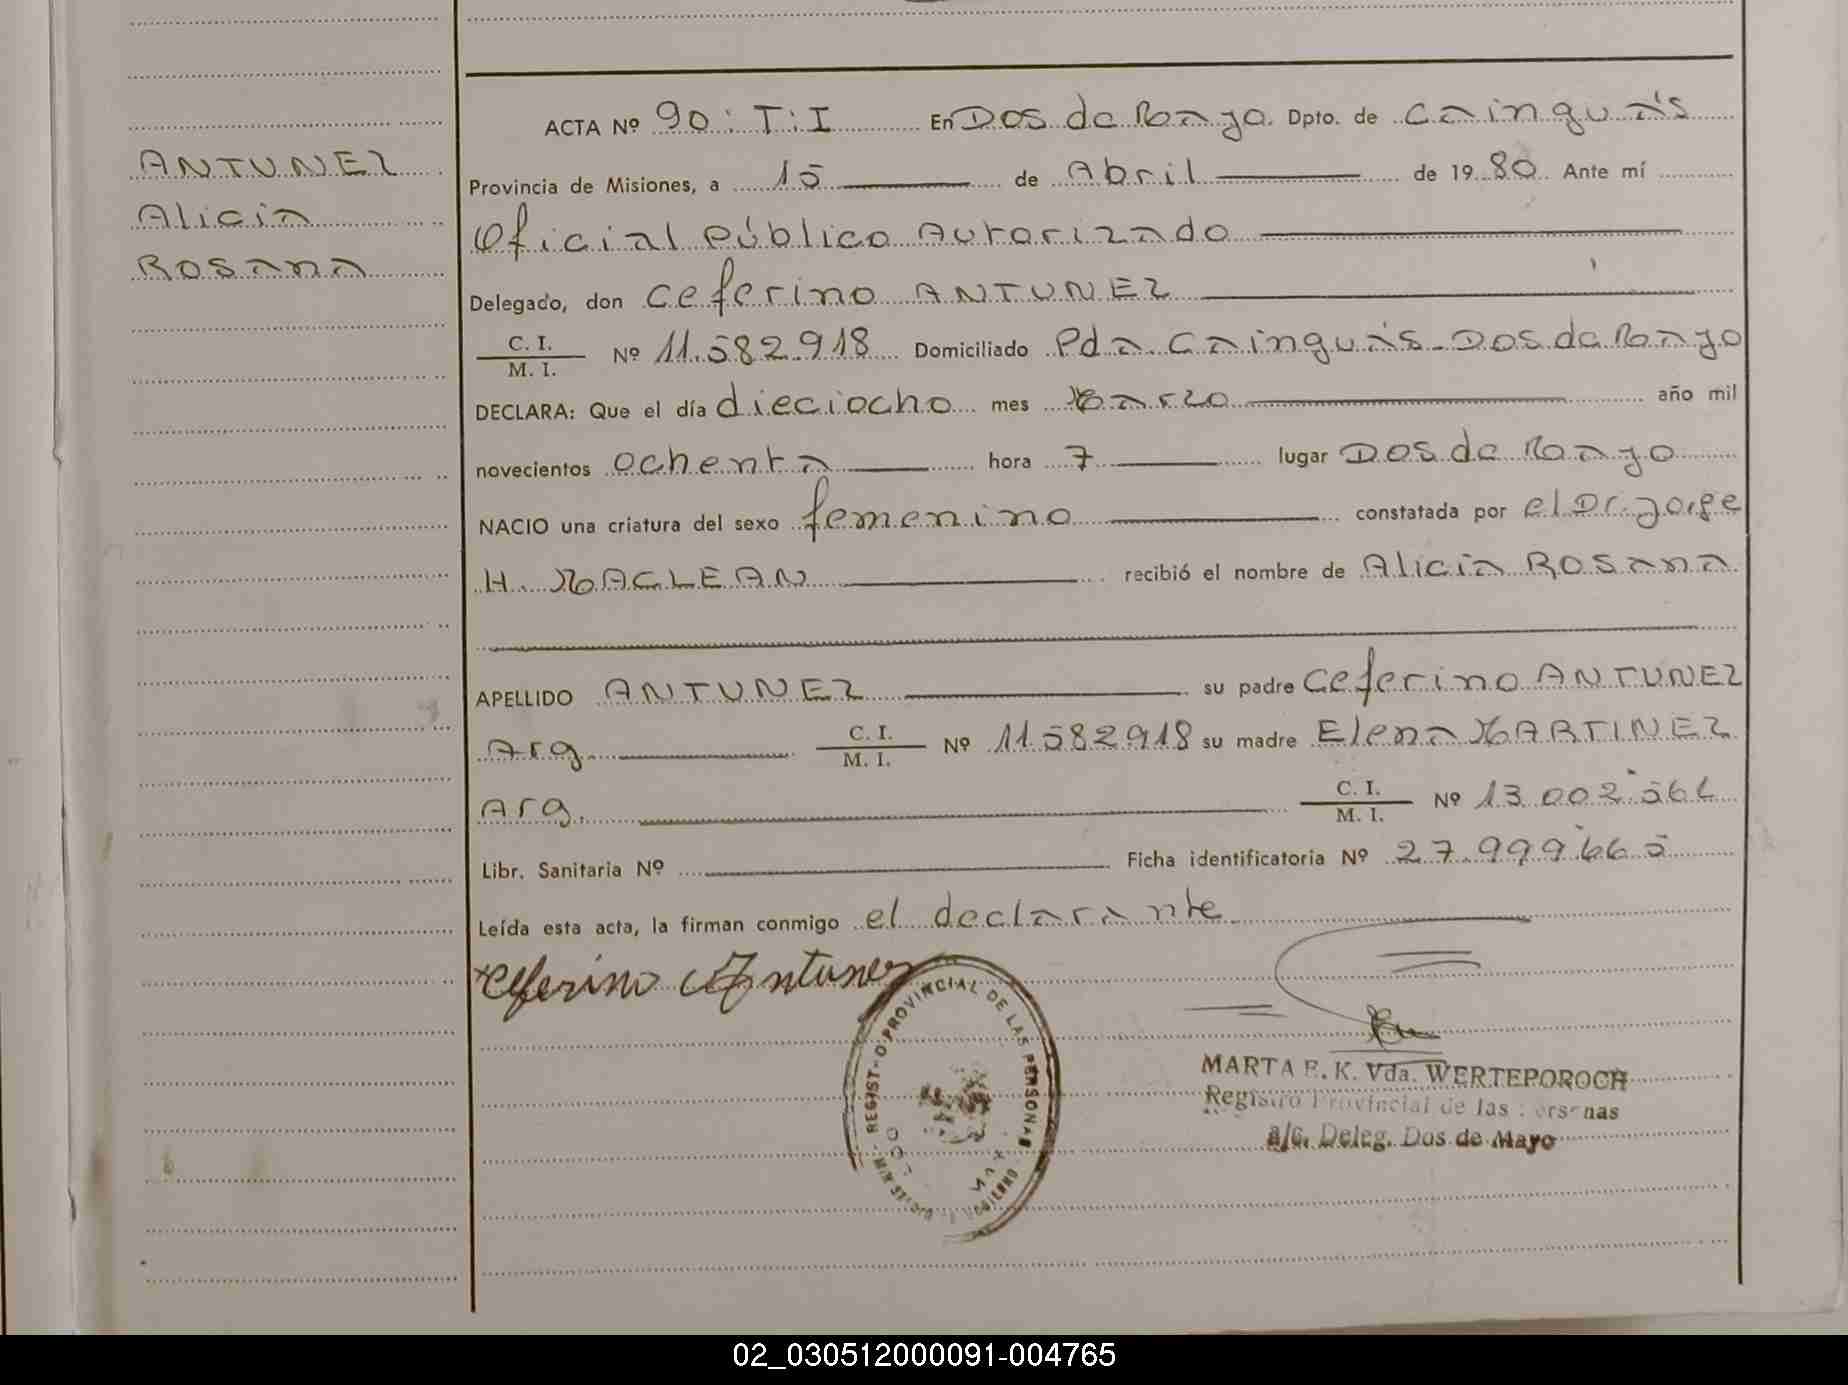 ANTUNEZ
Alicia
Rosana
ACTA Nº 90: T: I En Dos de Mayo. Dpto. de Cainguás
Provincia de Misiones, a 15 de Abril de 1980. Ante mí
Oficial Público Autorizado
Delegado, don Ceferino ANTUNEZ
C. I.
M. I. Nº 11.582.918 Domiciliado Pda. Cainguás - Dos de Mayo
DECLARA: Que el día dieciocho mes Marzo año mil
novecientos ochenta hora 7 lugar Dos de Mayo
NACIO una criatura del sexo femenino constatada por el Dr. Jorge
H. MACLEAN recibió el nombre de Alicia Rosana
APELLIDO ANTUNEZ su padre Ceferino ANTUNEZ
Arg. C. I.
M. I. Nº 11.582.918 su madre Elena MARTINEZ
Arg. C. I.
M. I. Nº 13.002.561
Libr. Sanitaria Nº Ficha identificatoria Nº 27.999.665
Leída esta acta, la firman conmigo el declarante
Ceferino Antunez
REGISTRO PROVINCIAL DE LAS PERSONAS
MARTA E. K. Vda. WERTEPOROCH
Registro Provincial de las Personas
a/c. Deleg. Dos de Mayo
02_030512000091-004765